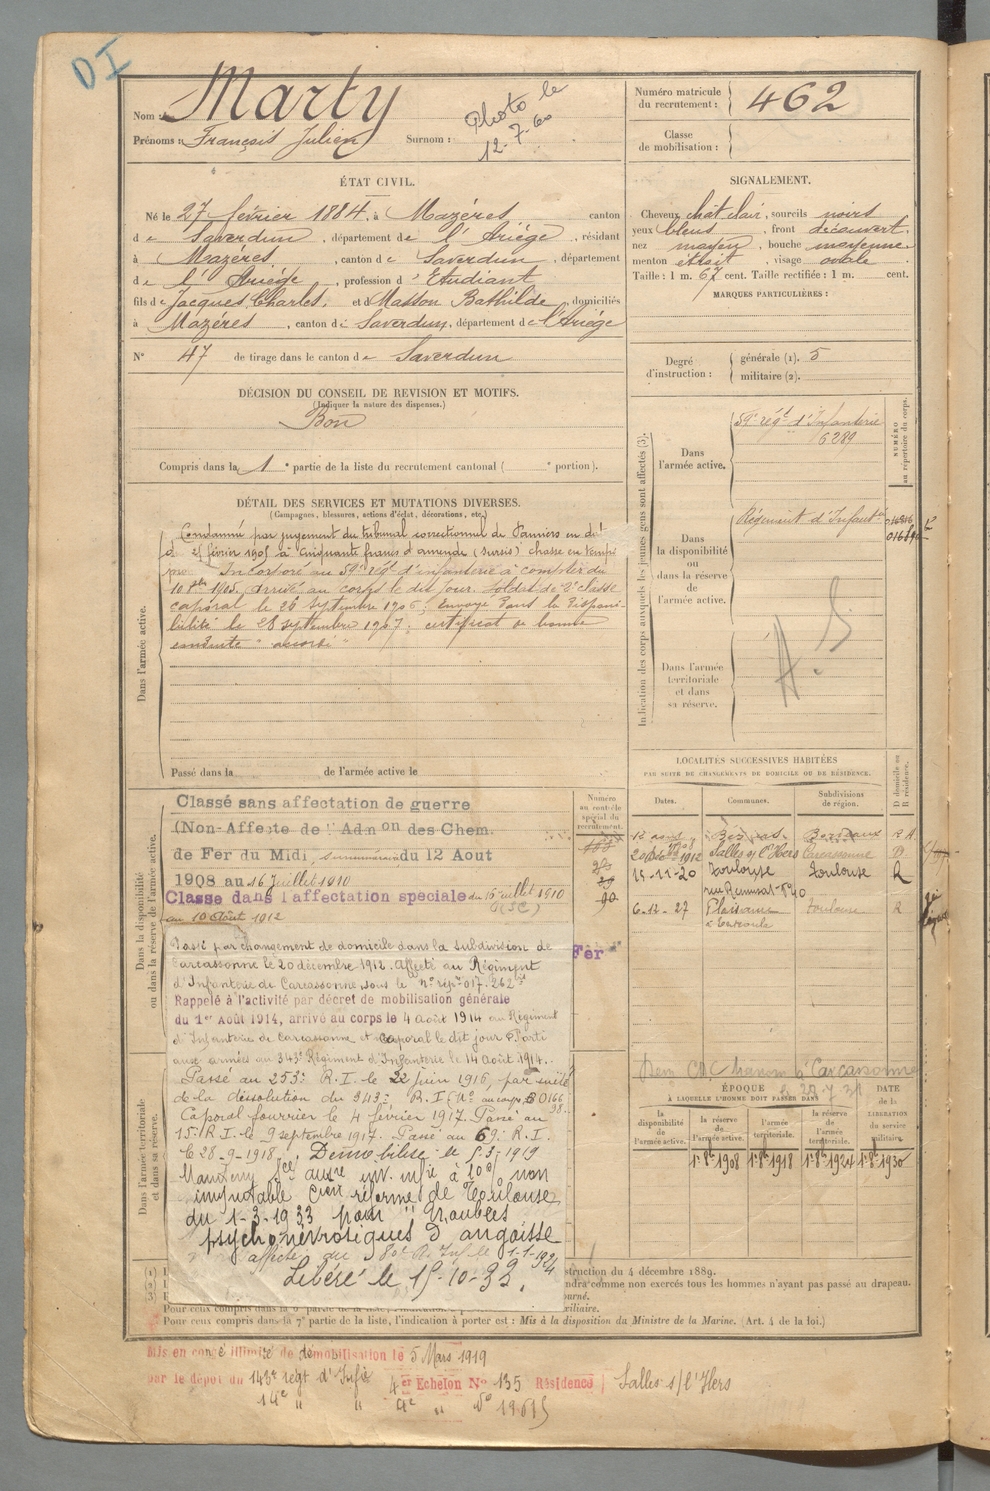 DI
Nom : Marty
Prénoms : François Julien Surnom :
Photo le
12-7-60
Numéro matricule
du recrutement : 462
Classe
de mobilisation :
ÉTAT CIVIL.
Né le 27 février 1884, à Mazéres canton
de Saverdun, département de l'Ariége, résidant
à Mazéres, canton de Saverdun, département
de l'Ariége, profession d'Etudiant
fils de Jacques Charles, et d Masson Bathilde, domiciliés
à Mazéres, canton de Saverdun, département de l'Ariége
N° 47 de tirage dans le canton de Saverdun
SIGNALEMENT.
Cheveux chât clair, sourcils noirs
yeux bleus, front découvert.
nez moyen, bouche moyenne
menton étroit, visage ovale.
Taille : 1 m. 67 cent. Taille rectifiée : 1 m. cent.
MARQUES PARTICULIÈRES :
Degré
d'instruction :
générale (1). 5
militaire (2).
DÉCISION DU CONSEIL DE REVISION ET MOTIFS.
(Indiquer la nature des dispenses.)
Bon
Compris dans la 1e partie de la liste du recrutement cantonal ( e portion).
DÉTAIL DES SERVICES ET MUTATIONS DIVERSES.
(Campagnes, blessures, actions d'éclat, décorations, etc.)
Dans l'armée active.
Condamné par jugement du tribunal correctionnel de Pamiers en dat
février 1905 à cinquante francs d'amende (sursis) chasse en temps
Incorporé au 59e régt d'infanterie à compter du
1905. Arrivé au corps le dit jour. Soldat de 2e classe
caporal le 26 septembre 1906; envoyé dans la disponi-
bilité le 28 septembre 1907. certificat de bonne
conduite "accordé"
Passé dans la de l'armée active le
Indication des corps auxquels les jeunes gens sont affectés (3).
NUMÉRO
au répertoire du corps.
Dans
l'armée active.
59e régt d'Infanterie
6289
Dans
la disponibilité
ou
dans la réserve
de
l'armée active.
Régiment d'Infantrie
Dans l'armée
territoriale
et dans
sa réserve.
A.S
LOCALITÉS SUCCESSIVES HABITÉES
PAR SUITE DE CHANGEMENTS DE DOMICILE OU DE RÉSIDENCE.
Dates. Communes. Subdivisions
de région.
D domicile ou
R résidence.
Bordeaux R
1912 Salles s/ l'Hers Carcassonne D.
15-11-20 Toulouse Toulouse R
rue Remusat 40
6-12-27 Plaisance Toulouse R
Dans la disponibilité
ou dans la réserve de l'armée active.
Numéro
au contrôle
spécial du
recrutement.
Classé sans affectation de guerre
(Non-Affecte de l'Admon des Chem.
de Fer du Midi, surnuméraire du 12 Aout
1908 au 16 Juillet 1910
Classe dans l'affectation speciale du 16 juillet 1910
au 10 Août 1912
Fer
Passé par changement de domicile dans la subdivision de
Carcassonne le 20 décembre 1912. Affecté au Régiment
d'Infanterie de Carcassonne sous le n° répre 017.262
Rappelé à l'activité par décret de mobilisation générale
du 1er Août 1914, arrivé au corps le 4 août 1914 au Régiment
d'Infanterie de Carcassonne et caporal le dit jour. Parti
aux armées au 343e Régiment d'Infanterie le 14 août 1914.
Passé au 253e R.I. le 22 juin 1916, par suite
de la dissolution du 343e R.I. (N° au corps
Caporal fourrier le 4 février 1917. Passé au
15e R.I. le 9 septembre 1917. Passé au 69e R.I.
le 28-9-1918. Démobilisé le 5-3-1919
Maintenu Sce auxre inv. infre à 10% non
imputable Cion réforme de Toulouse
du 1-3-1933 pour "troubles
psychonévrotiques d'angoisse
affecté au 80e R. Inf le 1-1-1924
Libéré le 15-10-33.
Dans l'armée territoriale
et dans sa réserve.
à Carcassonne
ÉPOQUE
À LAQUELLE L'HOMME DOIT PASSER DANS
DATE
de la
LIBÉRATION
du service
militaire.
la
disponibilité
de
l'armée active.
la réserve
de
l'armée active.
l'armée
territoriale.
la réserve
de
l'armée
territoriale.
1er 8bre 1908 1er 8bre 1918 1er 8bre 1924 1er 8bre 1930
struction du 4 décembre 1889.
comme non exercés tous les hommes n'ayant pas passé au drapeau.
Pour ceux compris dans la 7e partie de la liste, l'indication à porter est : Mis à la disposition du Ministre de la Marine. (Art. 4 de la loi.)
Mis en congé illimité de démobilisation le 5 Mars 1919
par le dépôt du 143e régt d'Infie 4er Echelon N° 135 Résidence Salles s/ l'Hers